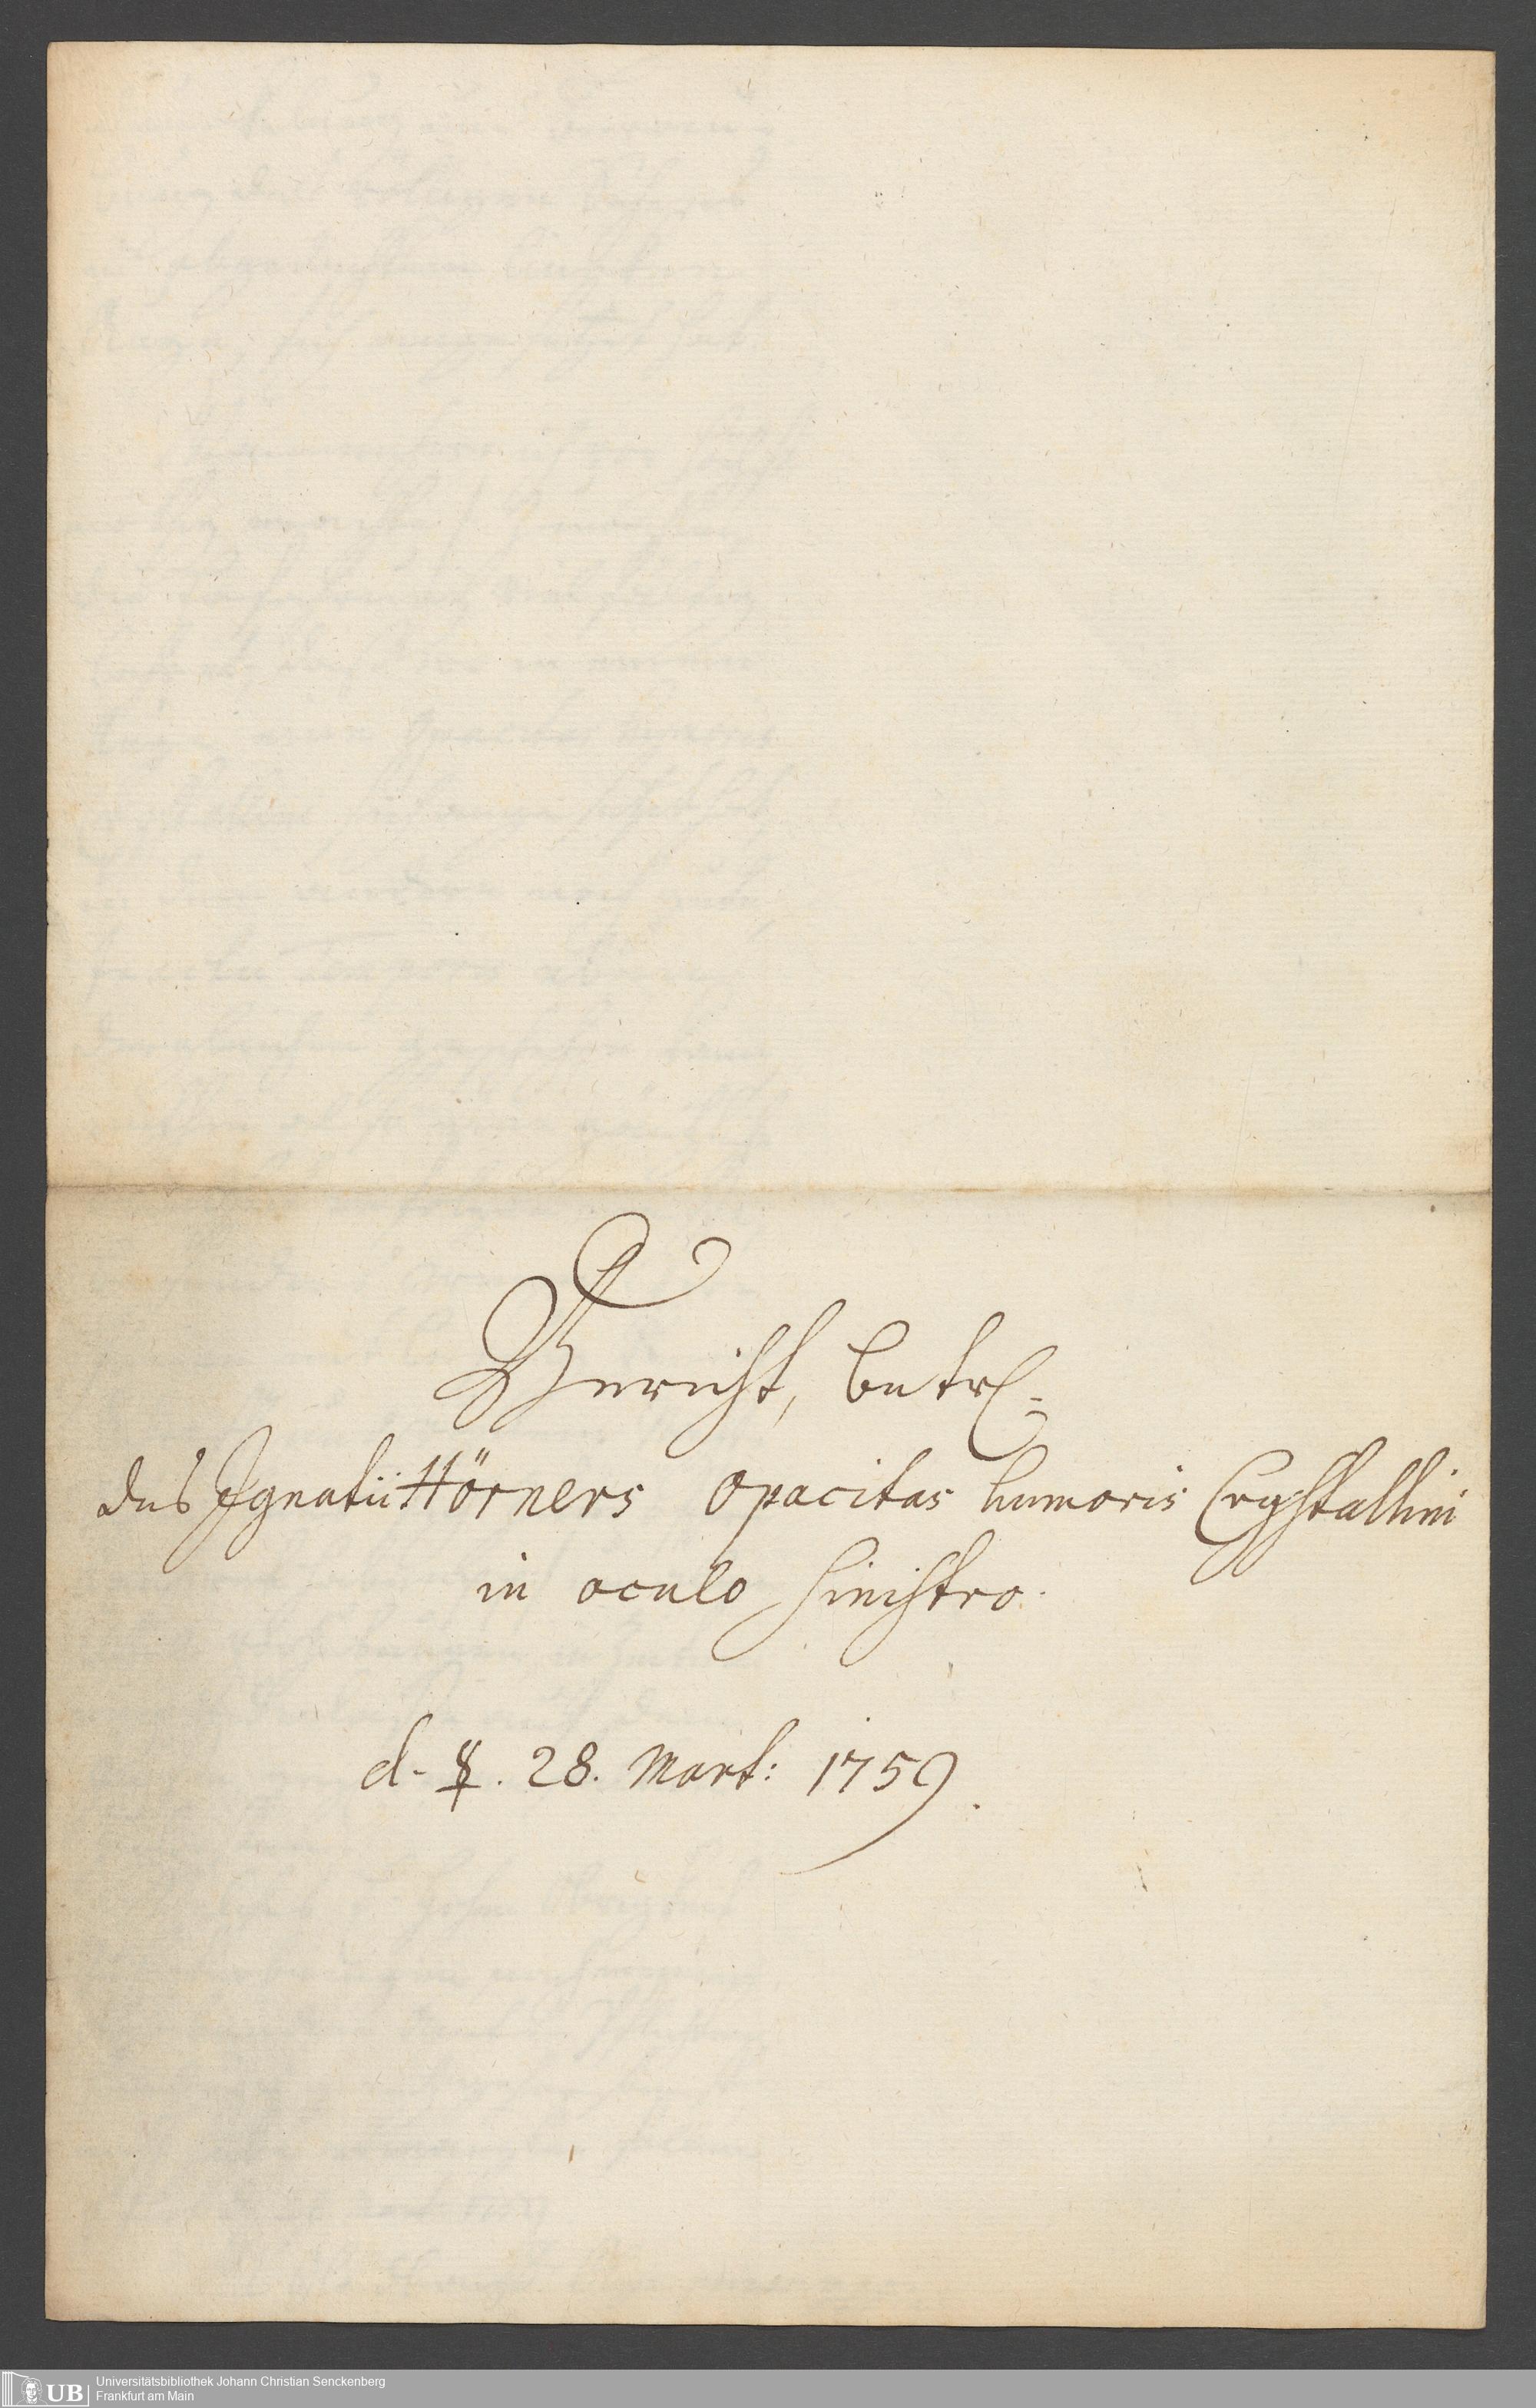 Bericht, betr.
des Ignatii Hörners opacitas humoris Crystallini
in oculo sinistro.
d. ☿. 28. Mart: 1759.
UB Universitätsbibliothek Johann Christian Senckenberg
Frankfurt am Main